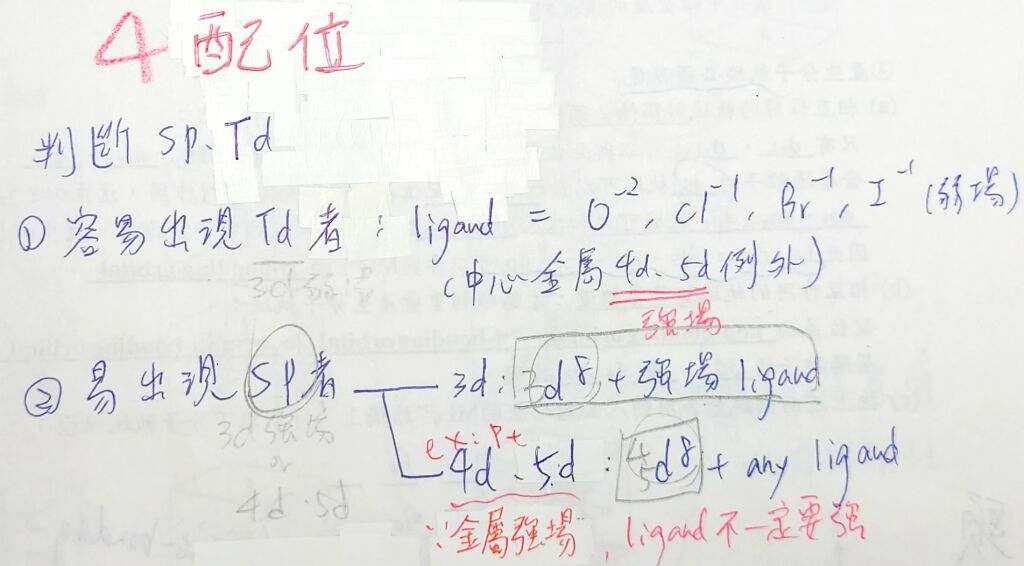 4 配位
判斷 SP、Td
① 容易出現 Td 者 : ligand = O⁻², Cl⁻¹, Br⁻¹, I⁻¹ (弱場)
3d弱場
(中心金屬 4d、5d 例外)
強場
② 易出現 SP者
3d : 3d⁸ + 強場 ligand
3d強場
or
4d、5d
ex: Pt
4d、5d : 4d⁸ + any ligand
5
∵金屬強場, ligand不一定要強